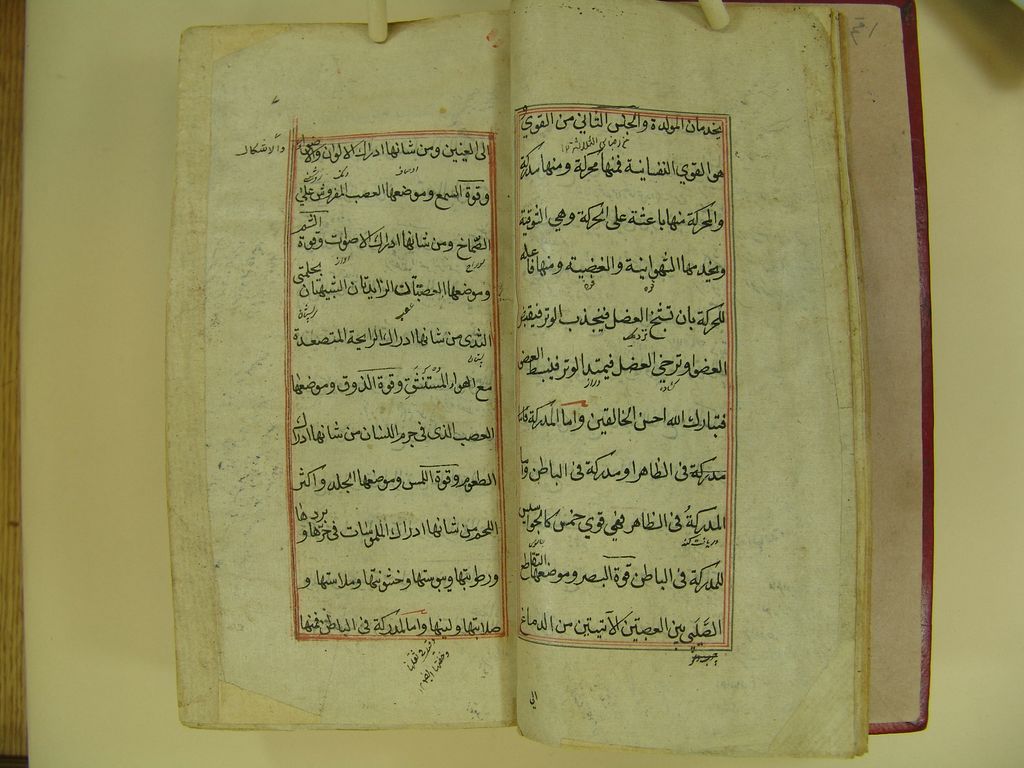 يخدمان المولدة والجنس الثاني من القوي
هو القوي النفسانية فمنها محركة ومنها مدركة
والمحركة منها باعثة على الحركة وهي الشوقية
ويخدمها الشهوانية والغضبية ومنها فاعله
قوة قوة
للحركة بان تشنج العضل فينجذب الوتر فيقبض
العضو او ترخي العضل فيمتد الوتر فينبسط العضو
دراز كشاده
فتبارك الله احسن الخالقين واما المدركة فاما
مدركة في الظاهر او مدركة في الباطن واما
المدركة في الظاهر فهي قوي خمس كالجواسيس
دريافت كننده
للمدركة في الباطن قوة البصر وموضعها التقاطع
الصليبي بين العصبتين الآتيتين من الدماغ
الي
الى العينين ومن شانها ادراك الالوان والاضواء
والاشكال
وقوة السمع وموضعها العصب المفروش علي
الصماخ ومن شانها ادراك الاصوات وقوة الشم
وموضعها العصبتان الزايدتان الشبيهتان بحلمتي
الثدي من شانها ادراك الرايحة المتصعدة
پستان
مع الهواء المستنشق وقوة الذوق وموضعها
العصب الذي في جرم اللسان من شانها ادراك
الطعوم وقوة اللمس وموضعها الجلد واكثر
اللحم من شانها ادراك الملموسات في حرها وبردها
ورطوبتها ويبوستها وخشونتها وملاستها و
صلابتها ولينها واما المدركة في الباطن فمنها